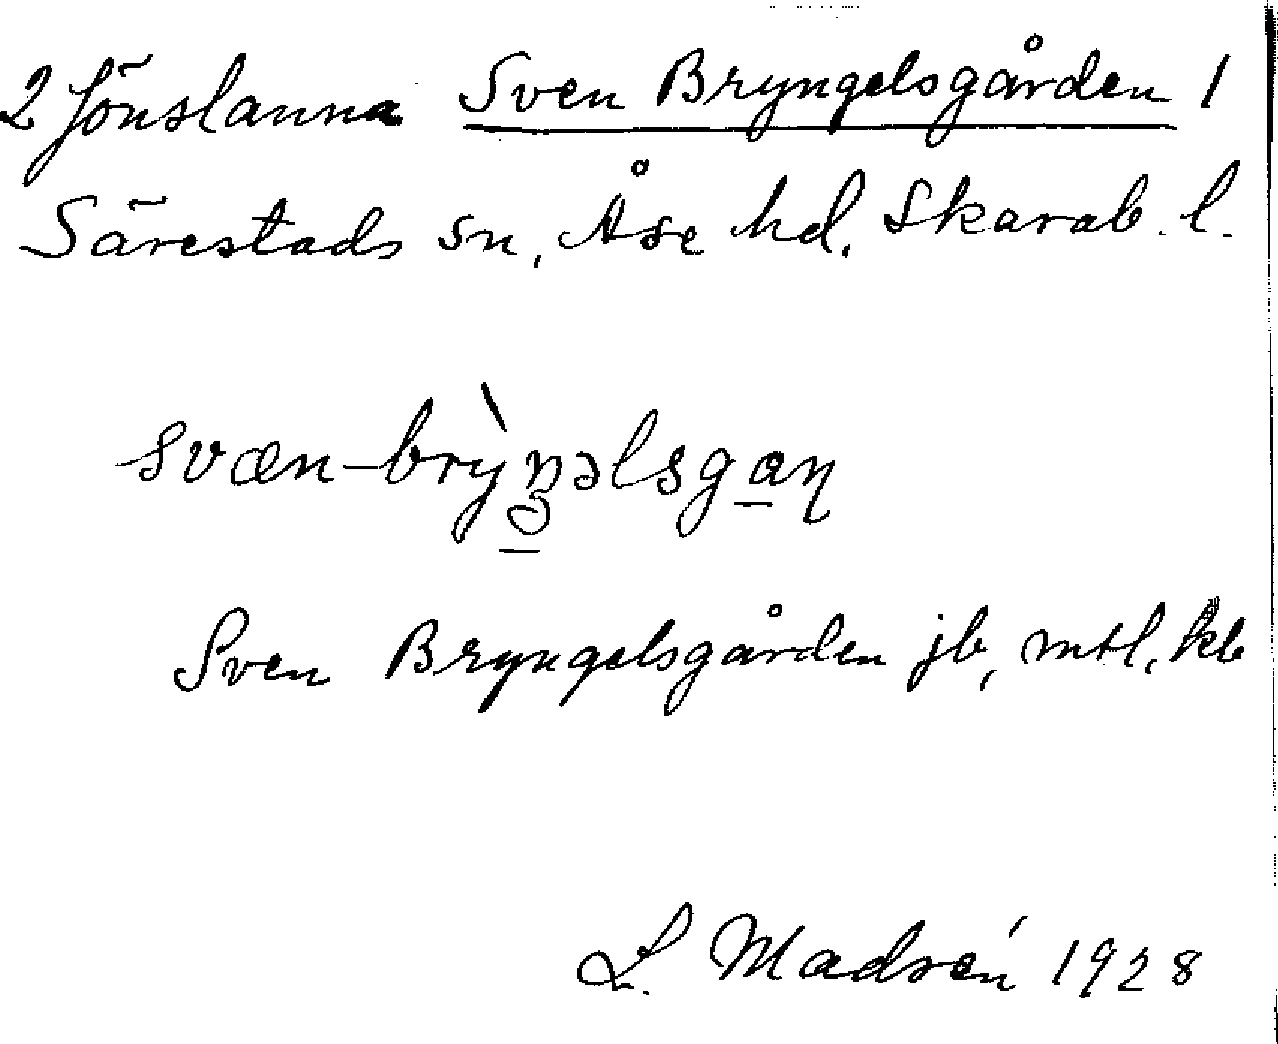 2 Jönslanna Sven Bryngelsgården 1
Särestads sn, Åse hd. Skarab. l.
svæn-brỳŋəlsgaɳ
Sven Bryngelsgården jb, mtl, kb
L. Madsén 1928